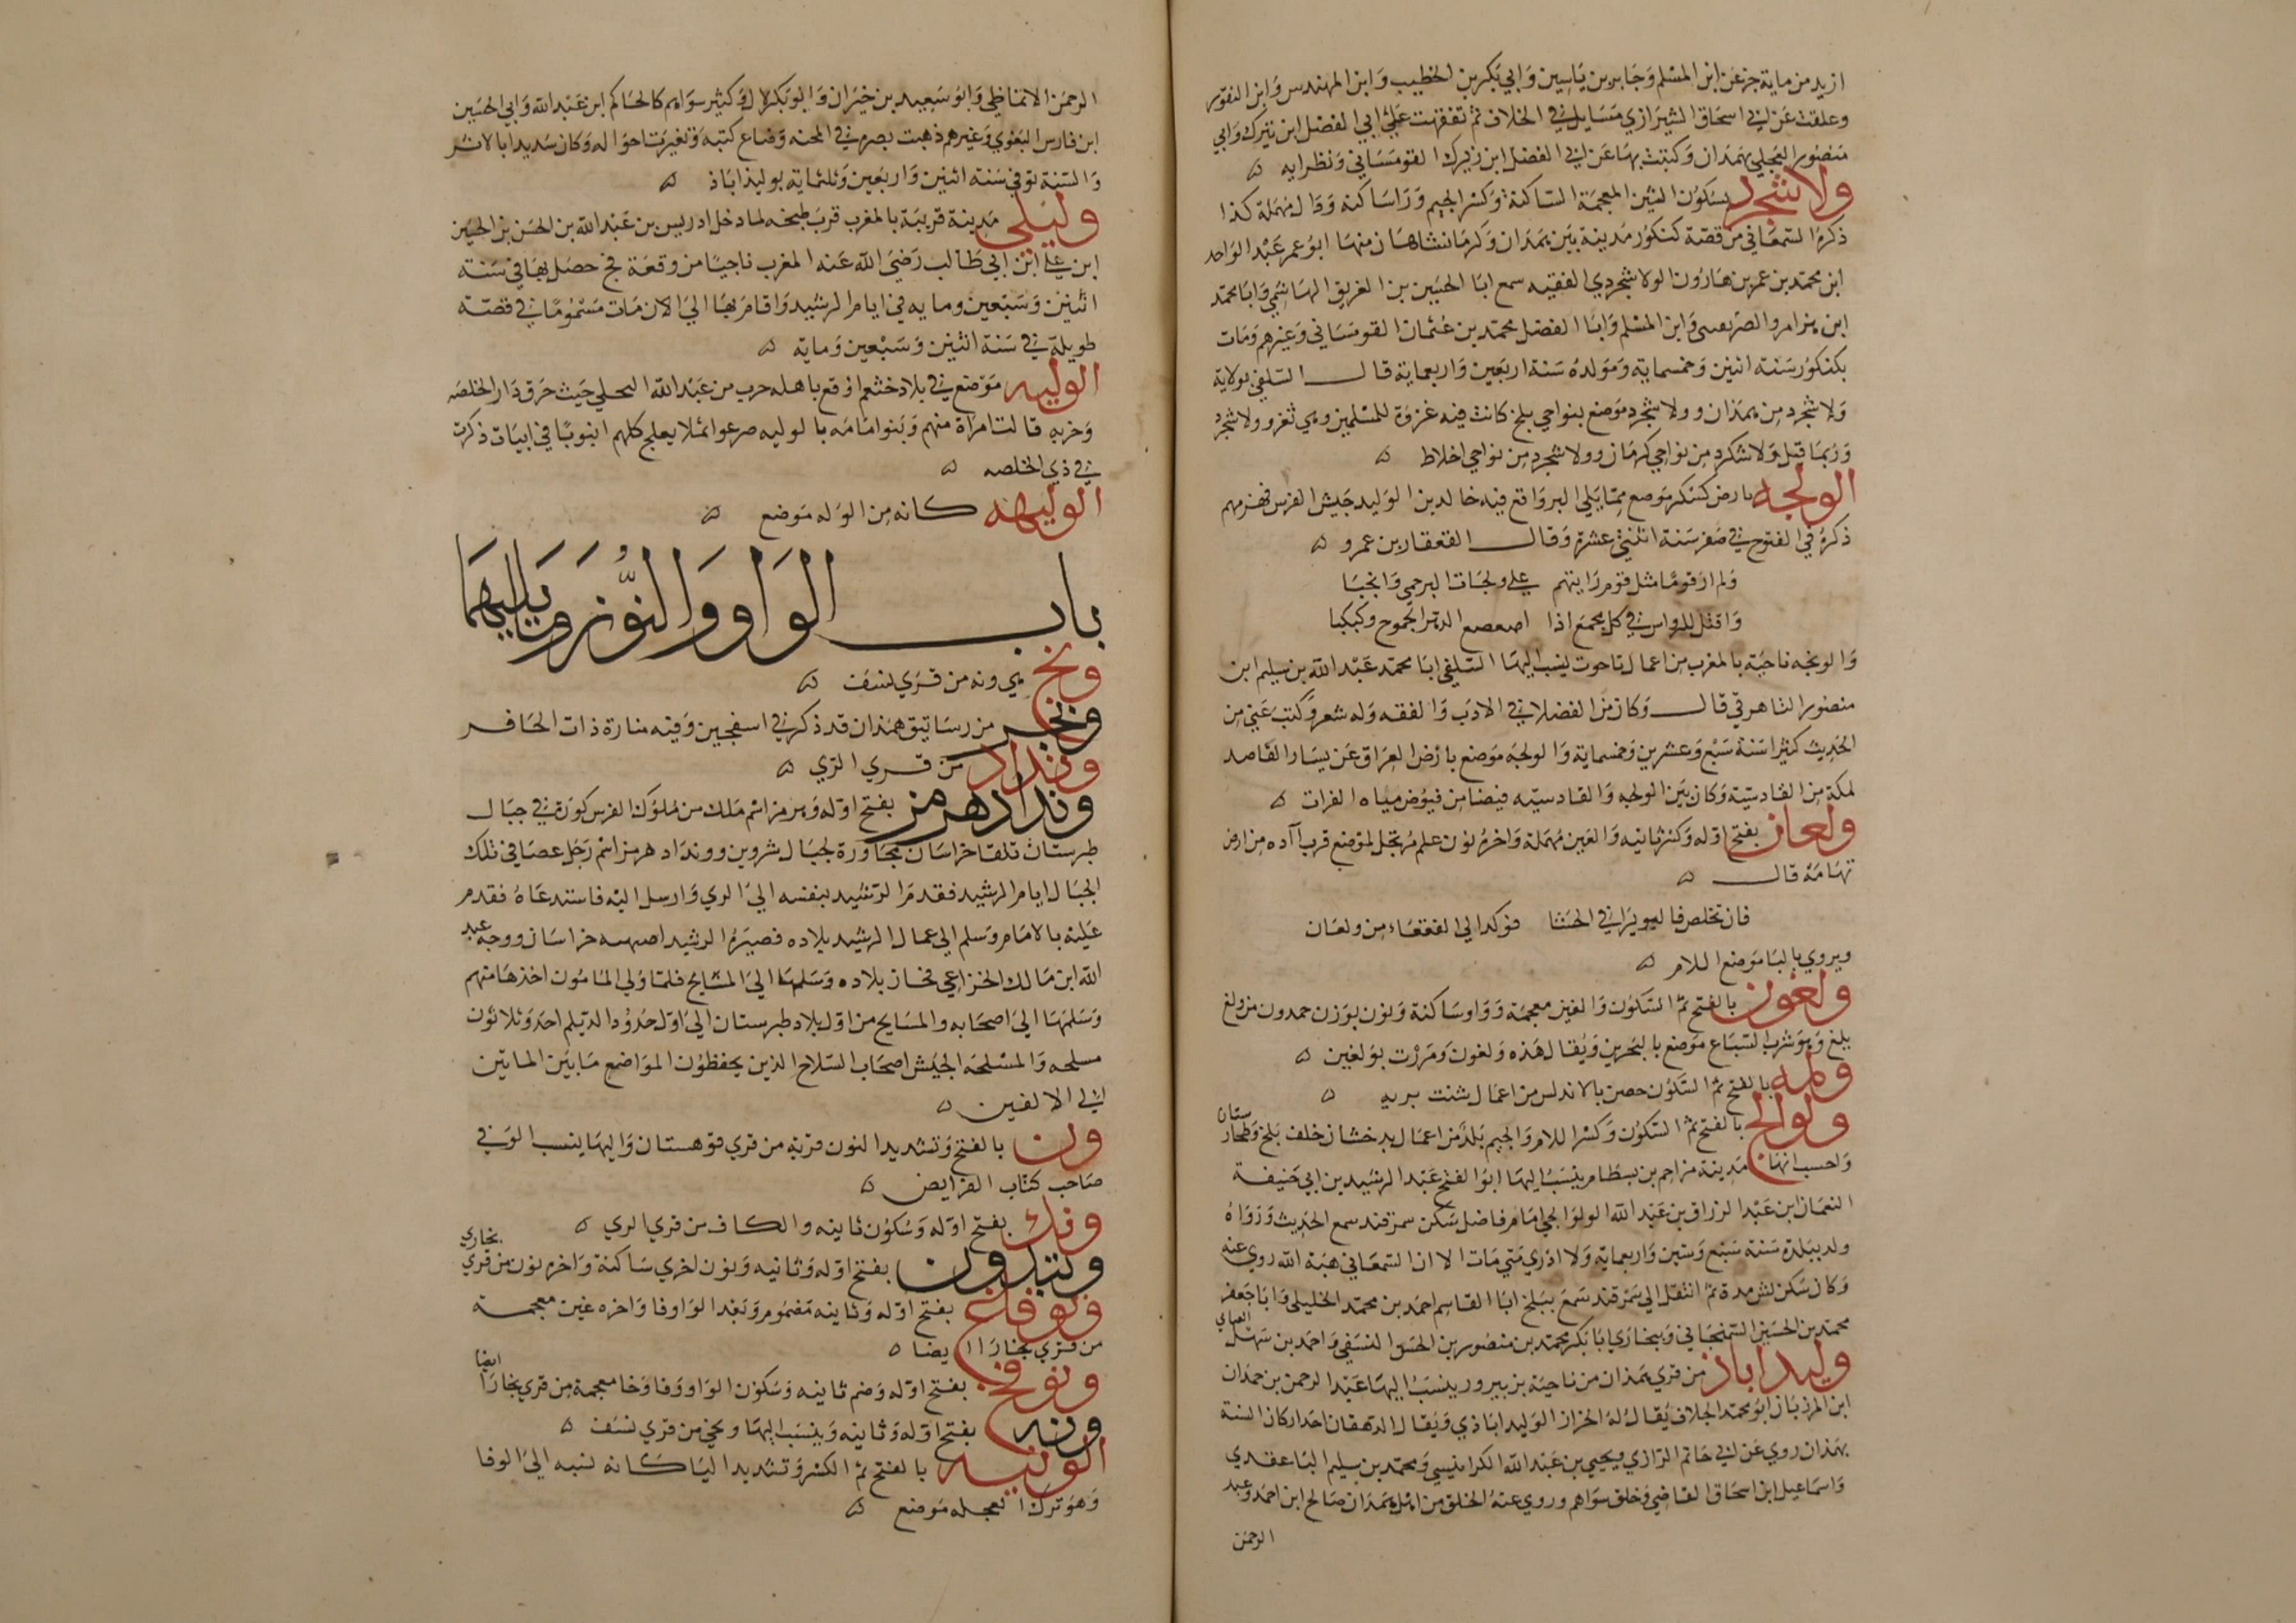 ازيد من ماية جزء عن ابن المسلم وجابر بن ياسين وابي بكر بن الخطيب وابن المهندس وابن النقور
وعلقت عن ابي اسحاق الشيرازي مسايل في الخلاف ثم تفقهت علي ابي الفضل ابن تيرك وابي
منصور العجلي بهمذان وكتبت بها عن ابي الفضل ابن زيرك القومساني ونظرايه
ولاشجرد بسكون الشين المعجمة الساكنة وكسر الجيم وراساكنه ودال مهملة كذا
ذكره السمعاني من قصة كنكور مدينة بين همذان وكرمانشاهان منها ابو عمر عبد الواحد
ابن محمد بن عمر بن هارون الولاشجردي الفقيه سمع ابا الحسين بن الغريق الهاشمي وابا محمد
ابن هزامرد الصريفيني وابن المسلم وابا الفضل محمد بن عثمان القومساني وغيرهم ومات
بكنكور سنه اثنين وخمسماية ومولده سنة اربعين واربعماية قال السلفي بولاية
ولاشجرد من همذان وولاشجرد موضع بنواحي بلخ كانت فيه غزوة للمسلمين وهي ثغر وولاشجرد
وربما قيل ولاشكرد من نواحي كرمان وولاشجرد من نواحي اخلاط
الولجه بارض كسكر موضع ممايلي البر واقع فيه خالد بن الوليد جيش الفرس فهزمهم
ذكره في الفتوح في صفر سنة اثنتي عشرة وقال القعقاع بن عمرو
ولم ار قوما مثل قوم رايتهم علي ولجات البر حمي وانجبا
واقتل للرواس في كل مجمع اذا الدهر الجموح وكبكبا
والولجه ناحية بالمغرب من اعمال تاهرت ينسب اليها السلفي ابا محمد عبد الله بن سليم ابن
منصور التاهرتي قال وكان من الفضلا في الادب والفقه وله شعر وكتب عني من
الحديث كثيرا سنة سبع وعشرين وخمسماية والولجه موضع بارض العراق عن يسار القاصد
لمكة من القادسية وكان بين الولجه والقادسيه فيضا من فيوض مياه الفرات
ولعان بفتح اوله وكسر ثانيه والعين مهملة واخره نون علم مرتجل لموضع قرب آده من ارض
تهامة قال
فان تخلص فالبويرا في الحشا فوكدا الي القعقاء من ولعان
ويروي بالبا موضع اللام
ولغون بالفتح ثم السكون والغين معجمة وواو ساكنة ونون بوزن حمدون من ولغ
يلغ وهو شرب السباع موضع بالبحرين ويقال هذه ولغون ومررت بولغين
ولمه بالفتح ثم السكون حصن بالاندلس من اعمال شنت بريه
ولوالج بالفتح ثم السكون وكسر اللام والجيم بلد من اعمال بدخشان خلف بلخ وطخارستان
واحسب انها مدينة مزاحم بن بسطام ينسب اليها ابو الفتح عبد الرشيد بن ابي حنيفة
النعمان بن عبد الرزاق بن عبد الله الولوالجي امام فاضل سكن سمرقند سمع الحديث ورواه
ولد ببلده سنة سبع وستين واربعماية ولا ادري متي مات الا ان السمعاني هبة الله روي عنه
وكان سكن كش مدة ثم انتقل الي سمرقند سمع ببلخ ابا القاسم احمد بن محمد الخليلي وابا جعفر
محمد بن الحسين السمنجاني وببخاري ابا بكر محمد بن منصور بن الحسن النسفي واحمد بن سهل العتابي
وليداباذ من قري همذان من ناحية بزبيرود ينسب اليها عبد الرحمن بن حمدان
ابن المرزبان ابو محمد الجلاف يقال له الخزاز الوليداباذي ويقال الدهقان احد اركان السنة
بهمذان روي عن ابي حاتم الرازي ويحيي بن عبد الله الكرابيسي ومحمد بن سليم
واسماعيل ابن اسحاق القاضي وخلق سواهم وروي عنه الخلق من اهل همذان صالح ابن احمد وعبد
الرحمن
الرحمن الانماطي وابو سعيد بن خيران وابو بكر لال وكثير سواهم كالحاكم ابن عبد الله وابي الحسين
ابن فارس اللغوي وغيرهم ذهبت بصره في المحنه وضاع كتبه وتغيرت احواله وكان شديدا بالاثر
والسنة توفي سنه اثنين واربعين وثلثماية بوليذاباذ
وليلي مدينة قريبة بالمغرب قرب طنجه لما دخل ادريس بن عبد الله بن الحسن بن الحسين
ابن علي ابن ابي طالب رضي الله عنه المغرب ناجيا من وقعة فخ حصل بها في سنة
اثنين وسبعين وماية في ايام الرشيد واقام بها الي الان مات مسموما في قصة
طويلة في سنة اثنين وسبعين وماية
الوليه موضع في بلاد خثعم اوقع باهله حرب من عبد الله البجلي حيث حرق دار الخلصه
وخربه قالت امراة منهم وبنو امامه بالوليه صرعوا ثملا يعالج كلهم انبوبا في ابيات ذكرت
في ذي الخلصه
الوليهه كانه من الوله موضع
باب الواو والنون وما يليهما
ونج هي ونه من قري نسف
ونجر من رساتيق همذان قد ذكر في اسفجين وفيه منارة ذات الحافر
ونداد من قري الري
ونداد هرمز بفتح اوله وهرمز اسم ملك من ملوك الفرس كورة في جبال
طبرستان تلقا خراسان مجاورة لجبال شروين وونداد هرمز اسم رجل عصا في تلك
الجبال ايام الرشيد فقدم الرشيد بنفسه الي الري وارسل اليه فاستدعاه فقدم
عليه بالامام وسلم الي عمال الرشيد بلاده فصيره الرشيد اصبهبه خراسان ووجه عبد
الله ابن مالك الخزاعي فحاز بلاده وسلمها الي المشايخ فلما ولي المامون اخذها منهم
وسلمها الي اصحابه والمسايح من اول بلاد طبرستان الي اول حدود الديلم احد وثلاثون
مسلحه والمسلحه الجيش اصحاب السلاح الذين يحفظون المواضع ما بين المايتين
الي الالفين
ون بالفتح وتشديد النون قرية من قري قوهستان واليها ينسب الوني
صاحب كتاب الفرايض
ونك بفتح اوله وسكون ثانيه والكاف من قري الري
ونندون بفتح اوله وثانيه ونون اخري ساكنة واخره نون من قري بخاري
ونوفاغ بفتح اوله وثانيه مضموم وبعد الواو فا واخره غين معجمة
من قري بخارا ايضا
ونوفخ بفتح اوله وضم ثانيه وسكون الواو وفا وخا معجمة من قري بخارا ايضا
ونه بفتح اوله وثانيه وينسب اليها ونجي من قري نسف
الونيه بالفتح ثم الكسر وتشديد اليا كانه نسبه الي الوفا
وهو ترك العجله موضع